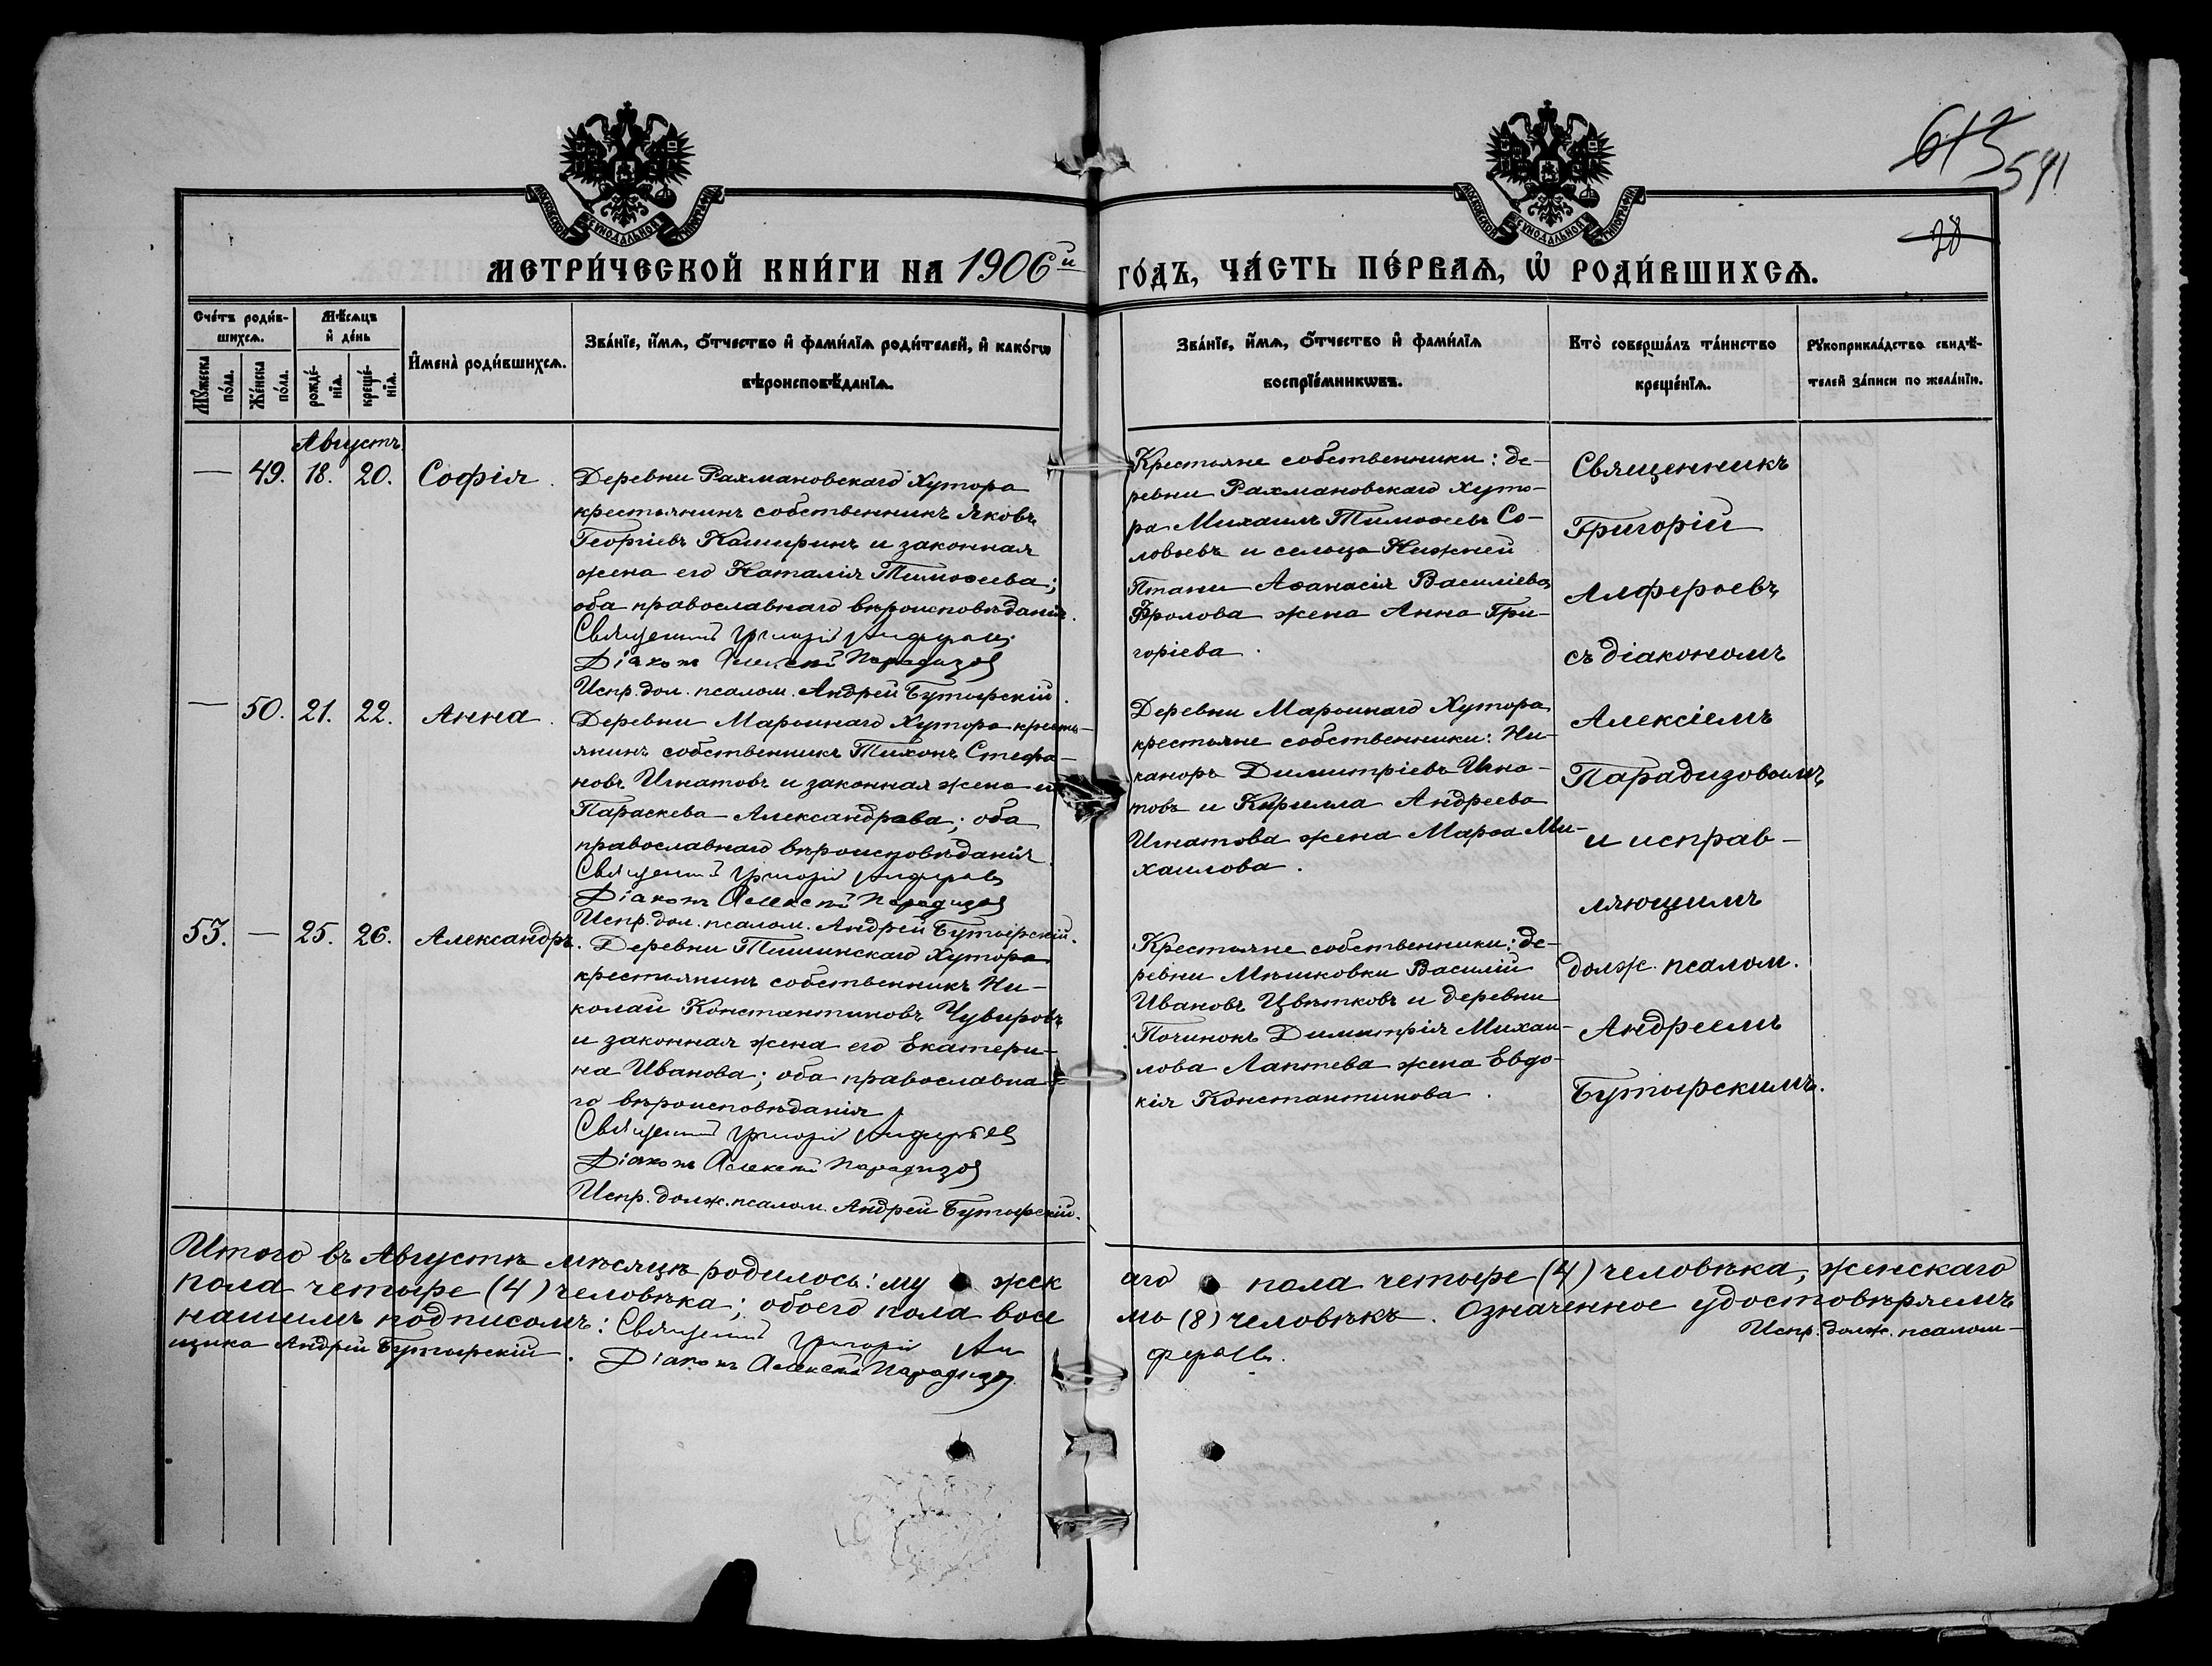 613
541
28
МОСКОВСКОЙ СУНОДАЛЬНОЙ ТИПОГРАФІИ
МОСКОВСКОЙ СУНОДАЛЬНОЙ ТИПОГРАФІИ
МЕТРИ́ЧЕСКОЙ КНИ́ГИ НА 1906й
ГО́ДЪ, ЧА́СТЬ ПЕ́РВАѦ, Ѡ҆ РОДИ́ВШИХСѦ.
Сче́тъ роди́в-
шихсѧ.
Мѣ́сѧцъ
и҆ де́нь
Мꙋ́жеска
по́ла.
Же́нска
по́ла.
рожде́-
нїѧ.
креще́-
нїѧ.
И҆мена̀ роди́вшихсѧ.
Зва́нїе, и҆́мѧ, ѻ҆́тчество и҆ фами́лїѧ роди́телей, и҆ како́гѡ
вѣроисповѣ́данїѧ.
Зва́нїе, и҆́мѧ, ѻ҆́тчество и҆ фами́лїѧ
воспрїе́мникѡвъ.
Кто̀ соверша́лъ та́инство
креще́нїѧ.
Рꙋкоприкла́дство свидѣ́-
телей за́писи по жела́нїю.
Августъ
— 49. 18. 20. Софія.
Деревни Рахмановскаго Хутора
крестьянинъ собственникъ Яковъ
Георгіевъ Каширинъ и законная
жена его Наталія Тимоѳеева;
оба православнаго вѣроисповѣданія.
Священникъ Григорій Алферьевъ
Діаконъ Алексій Парадизовъ
Испр. дол. псалом. Андрей Бутырскій.
Крестьяне собственники: де-
ревни Рахмановскаго Хуто-
ра Михаилъ Тимоѳеевъ Со-
ловьевъ и сельца Нижней
Птани Аѳанасія Василіева
Фролова жена Анна Гри-
горіева.
Священникъ
Григорій
Алферьевъ
съ діакономъ
Алексіемъ
Парадизовымъ
и исправ-
ляющимъ
долж. псалом.
Андреемъ
Бутырскимъ.
— 50. 21. 22. Анна.
Деревни Марьинаго Хутора кресть-
янинъ собственникъ Тихонъ Стефа-
новъ Игнатовъ и законная жена его
Параскева Александрова; оба
православнаго вѣроисповѣданія.
Священникъ Григорій Алферьевъ
Діаконъ Алексій Парадизовъ
Испр. дол. псалом. Андрей Бутырскій.
Деревни Марьинаго Хутора
крестьяне собственники: Ни-
каноръ Димитріевъ Игна-
товъ и Кирилла Андреева
Игнатова жена Марѳа Ми-
хаилова.
53. — 25. 26. Александръ.
Деревни Тишинскаго Хутора
крестьянинъ собственникъ Ни-
колай Константиновъ Чувировъ
и законная жена его Екатери-
на Иванова; оба православна-
го вѣроисповѣданія
Священникъ Григорій Алферьевъ
Діаконъ Алексій Парадизовъ
Испр. долж. псалом. Андрей Бутырскій.
Крестьяне собственники: де-
ревни Мѣшковки Василій
Ивановъ Цвѣтковъ и деревни
Починокъ Димитрія Михаи-
лова Лаптева жена Евдо-
кія Константинова.
Итого въ Августѣ мѣсяцѣ родилось: му жск аго пола четыре (4) человѣка, женскаго
пола четыре (4) человѣка; обоего пола восе мь (8) человѣкъ. Означенное удостовѣряемъ
нашимъ подписомъ: Священникъ Григорій Ал ферьевъ. Испр. долж. псалом-
щика Андрей Бутырскій. Діаконъ Алексій Парадизовъ